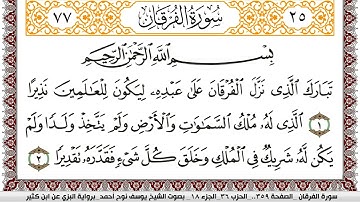 ٢٥ سُورَةُ الفُرْقَانِ ٧٧
بِسْمِ اللَّهِ الرَّحْمَٰنِ الرَّحِيمِ
تَبَارَكَ الَّذِي نَزَّلَ الْفُرْقَانَ عَلَىٰ عَبْدِهِ لِيَكُونَ لِلْعَالَمِينَ نَذِيرًا
١ الَّذِي لَهُ مُلْكُ السَّمَاوَاتِ وَالْأَرْضِ وَلَمْ يَتَّخِذْ وَلَدًا وَلَمْ
يَكُن لَّهُ شَرِيكٌ فِي الْمُلْكِ وَخَلَقَ كُلَّ شَيْءٍ فَقَدَّرَهُ تَقْدِيرًا ٢
سورة الفرقان الصفحة ٣٥٩.. الحزب ٣٦ الجزء ١٨ بصوت الشيخ يوسف نوح أحمد برواية البزي عن ابن كثير